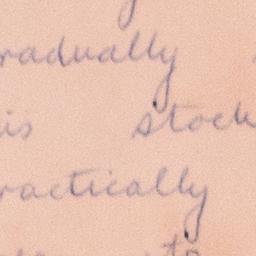 radually
is stock
ractically
to